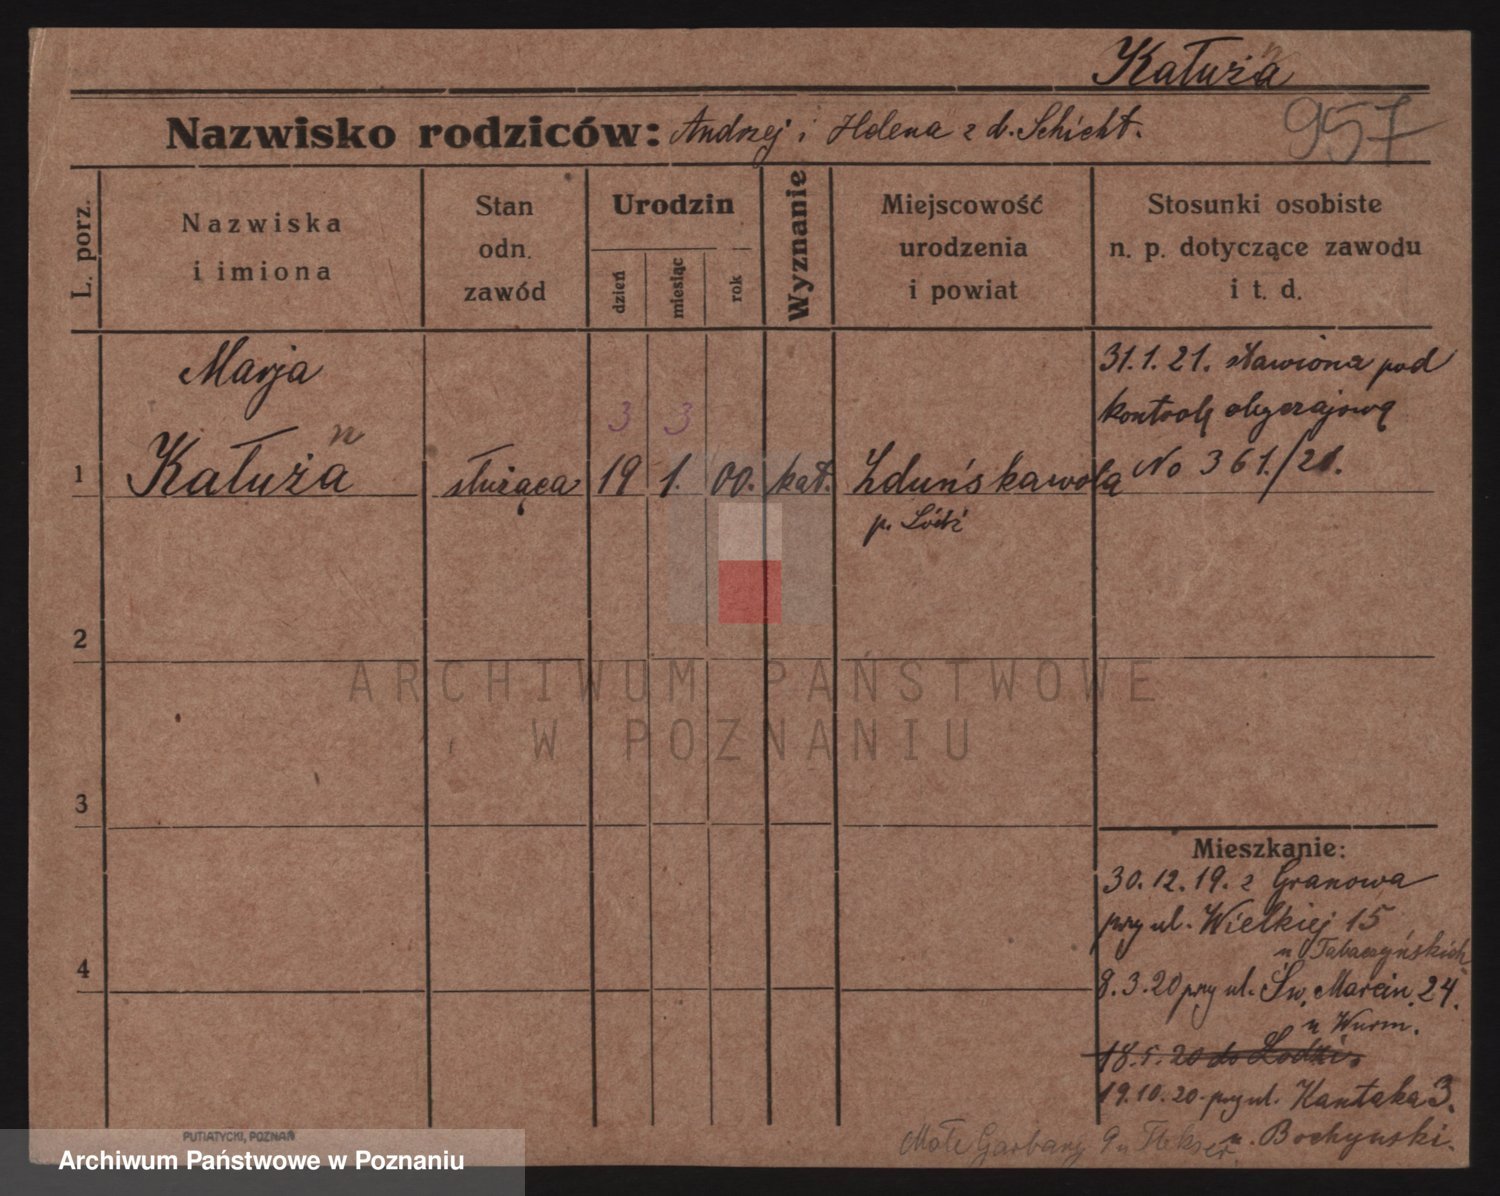 Kałuża
n
Nazwisko rodziców: Andrzej i Helena z d. Schicht.
957
L. porz.
Nazwiska
i imiona
Stan
odn.
zawód
Urodzin
dzień
miesiąc
rok
Wyznanie
Miejscowość
urodzenia
i powiat
Stosunki osobiste
n. p. dotyczące zawodu
i t. d.
Marja
31.1.21. stawiona pod
kontrolę obyczajową
3 3
n
1 Kałuża służąca 19 1. 00. kat. Zduńskawola No 361./21.
p. Łódź
2
ARCHIWUM PAŃSTWOWE
W POZNANIU
3
Mieszkanie:
30.12.19. z Granowa
przy ul. Wielkiej 15
u Tabaczyńskich
4
8.3.20 przy ul. Św. Marcin. 24.
u Wurm.
18.5.20 do Łodzi.
19.10.20. przy ul. Kantaka 3.
u. Bochynski.
Małe Garbary 9 u
PUTIATYCKI, POZNAŃ
Archiwum Państwowe w Poznaniu